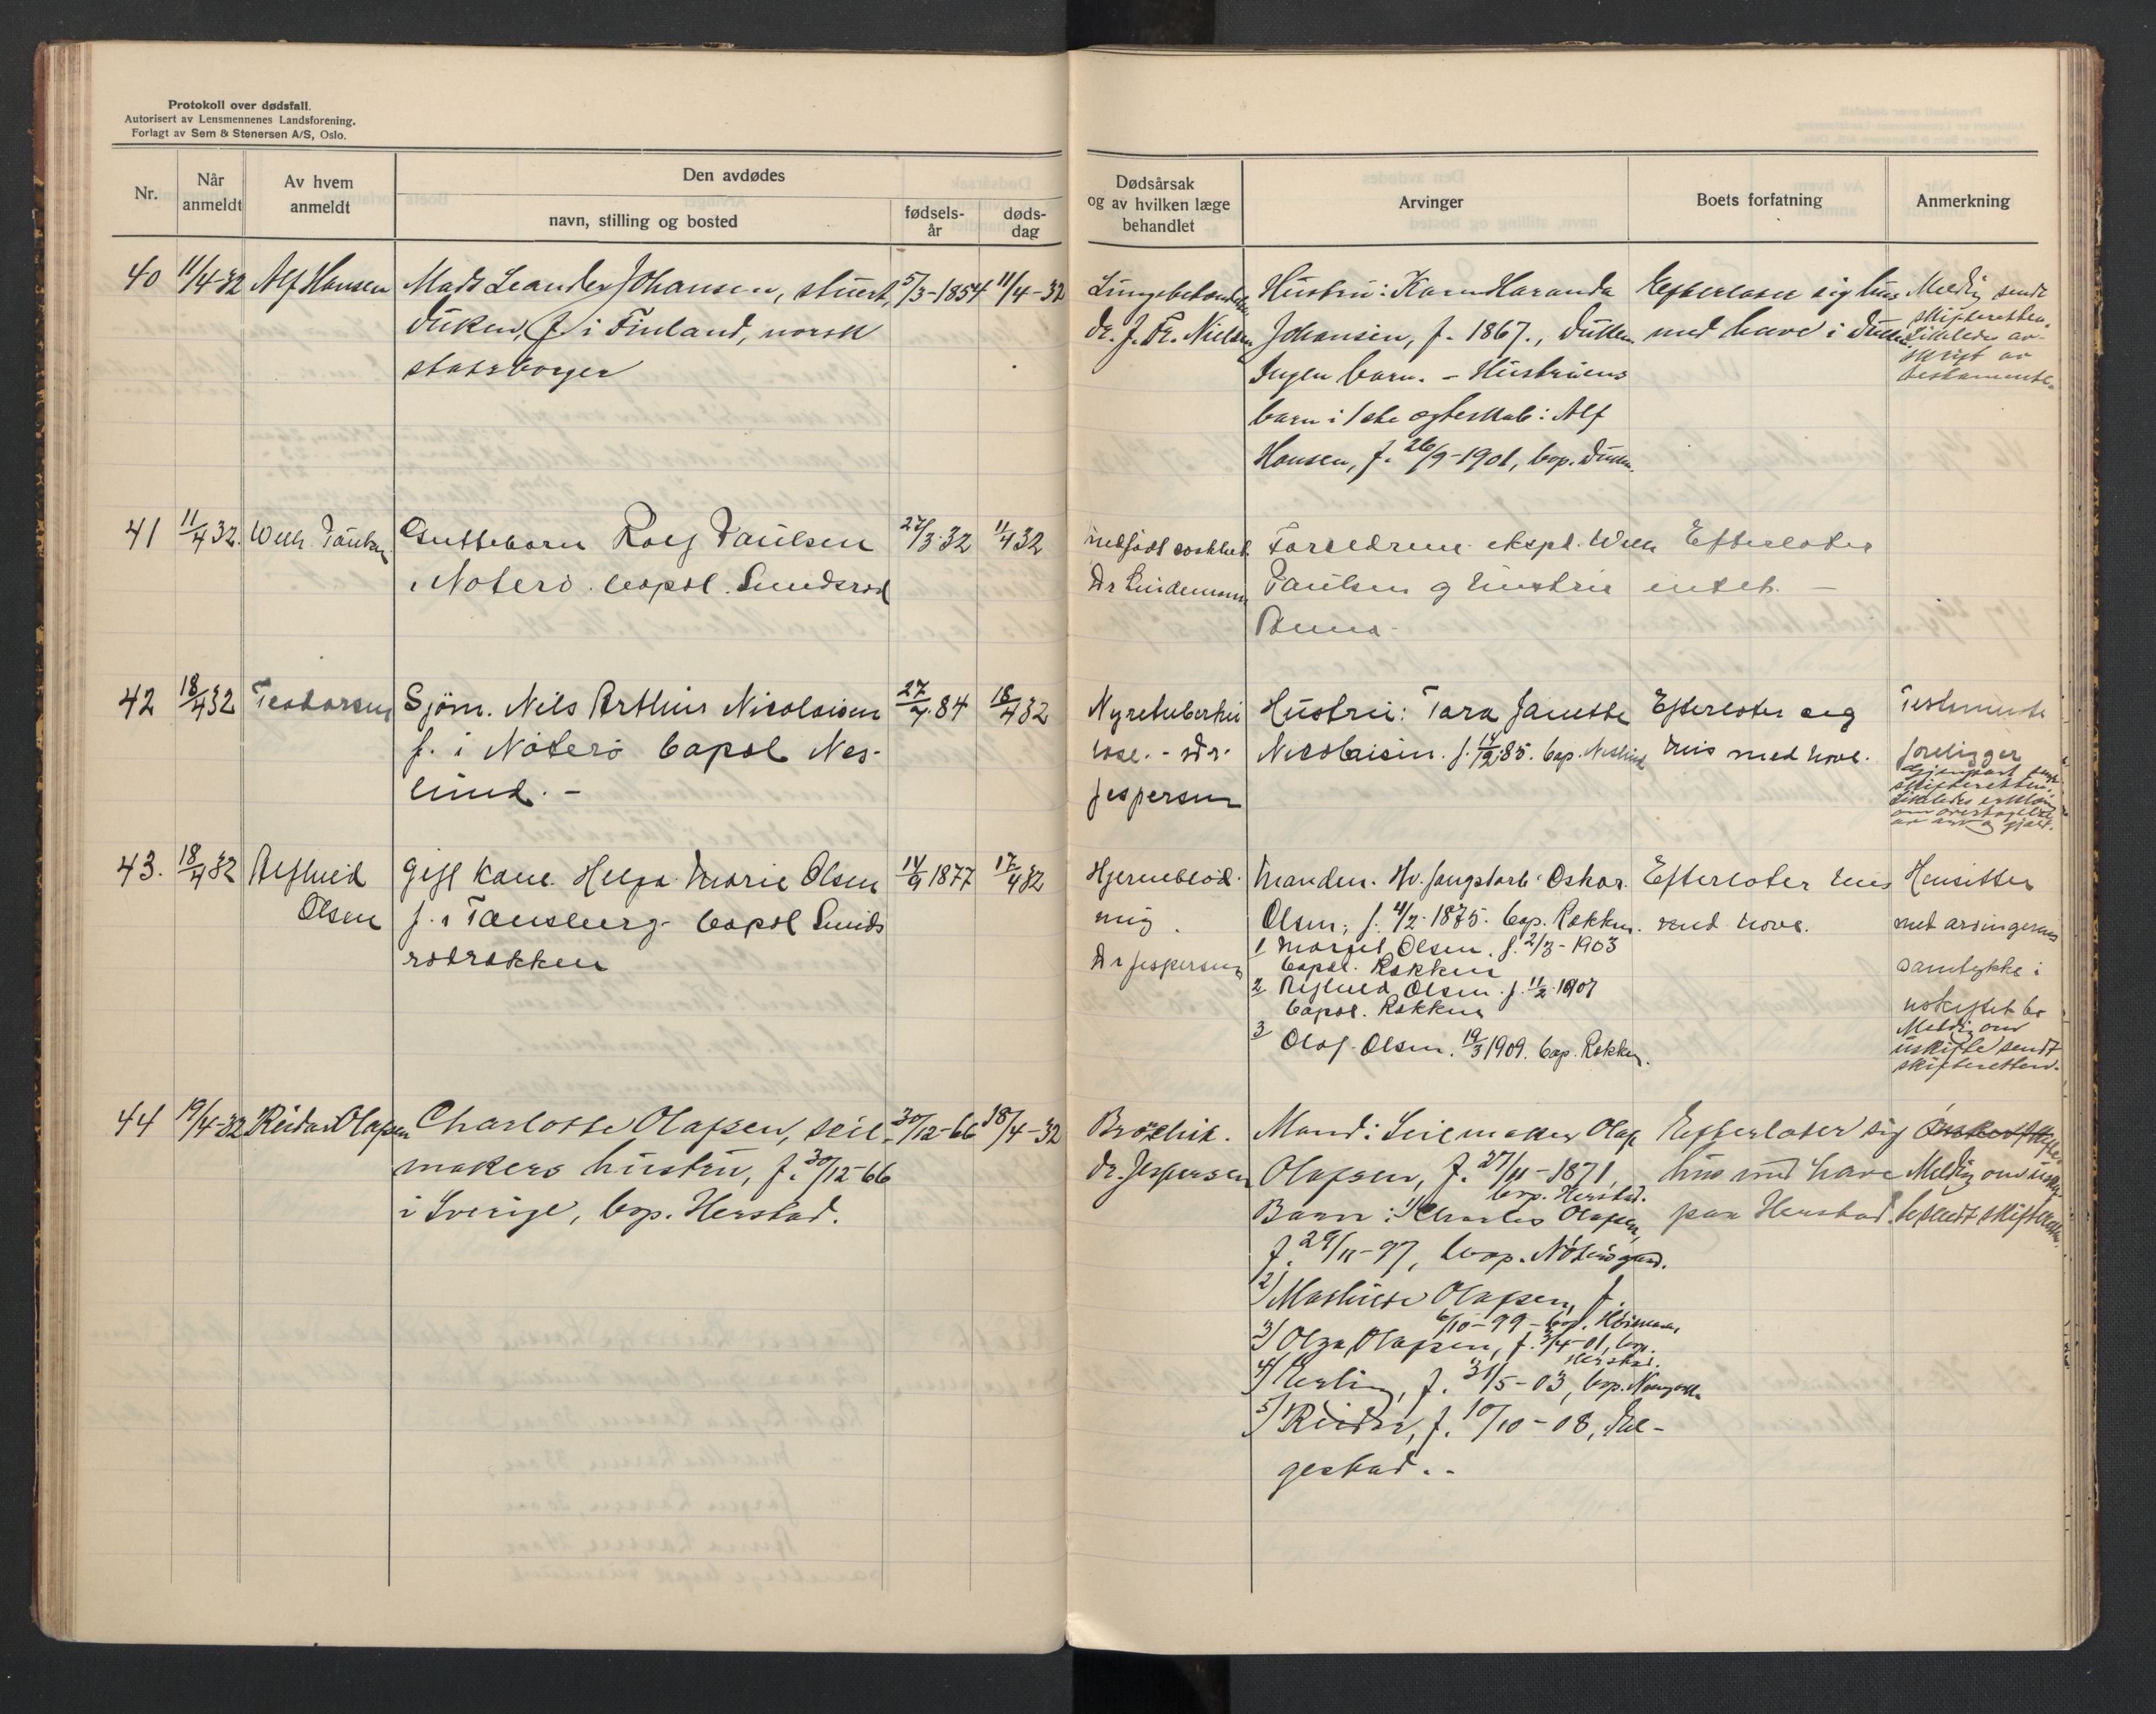 Protokoll over dødsfall.
Autorisert av Lensmennenes Landsforening.
Forlagt av Sem & Stenersen A/S, Oslo.
Nr.
Når anmeldt
Av hvem anmeldt
Den avdødes
navn, stilling og bosted
fødsels-år
døds-dag
Dødsårsak og av hvilken læge behandlet
Arvinger
Boets forfatning
Anmerkning
40 11/4-32 Alf Hansen Mads Leander Johansen, stuert, 5/3-1854 11/4-32
Duken, f. i Finland, norsk
statsborger
Dr. J. Fr. Nielsen
Hustru: Karen Haranda
Johansen, f. 1867.,
Ingen barn. - Hustruens
barn i 1ste egteskab: Alf
Hansen, f. 26/9-1901, bop.
Efterlater sig hus
med have i
Melding sendt
skifteretten.
Likeledes av-
skrift av
testamente.
41 11/4 32. Guttebarn Rolf Paulsen 27/3 32 11/4 32
Nøterø. bopæl. Sundsrød
Dr Lindemann
Forældrene ekspd. Wilh
Paulsen og hustru
Efterlater
intet. -
42 18/4 32 Teodorsen Sjöm. Nils Arthur Nicolaisen 27/7 84 18/4 32
f. i Nøterø bopæl Nes-
lund. -
Nyretuberku
lose. - Dr.
Jespersen
Hustru: Tara Janette
Nicolaisen. f. 14/12 85. bop. Neslund
Efterlater sig
hus med have.
Testamente
foreligger
Gjenpart
skifteretten.
Likeledes erklæring
om overtagelse
av arv og gjæld.
43. 18/4 32 Olsen
Gift kone. Helga Marie Olsen 14/9 1877 17/4 32
f. i Tønsberg. bopæl Sunds
rødrøkken
Hjerneblød-
ning.
Dr Jespersen
Manden. Hv. fangstarb. Oskar.
Olsen, f. 4/2-1875. bop. Røkken.
1 Olsen. f. 2/3-1903
bopæl. Røkken
2 Olsen. f. 11/2 1907
bopæl. Røkken
3 Olaf Olsen. 19/3 1909. bop. Røkken.
Efterlater hus
med have.
Hensitter
med arvingernes
samtykke i
uskiftet bo
Melding om
uskifte sendt
skifteretten.
44 19/4-32 Reidar Olafsen Charlotte Olafsen, seil- 30/12-66 18/4-32
makers hustru, f. 30/12-66
i Sverige, bop. Herstad.
dr. Jespersen
Mand: Seilmaker Olaf
Olafsen, f. 27/11-1871,
bop. Herstad.
Barn: 1) Charles Olafsen,
f. 29/11-97, bop.
2) Mathilde Olafsen, f.
6/10-99- bop.
3) Olga Olafsen, f. 3/4-01, bop.
Herstad.
4) Erling, f. 31/5-03, bop.
5) Reidar, f. 10/10-08, Hel-
gestad..
Efterlater sig
hus med have
paa Herstad.
Melding om uskif-
te sendt skifteretten.